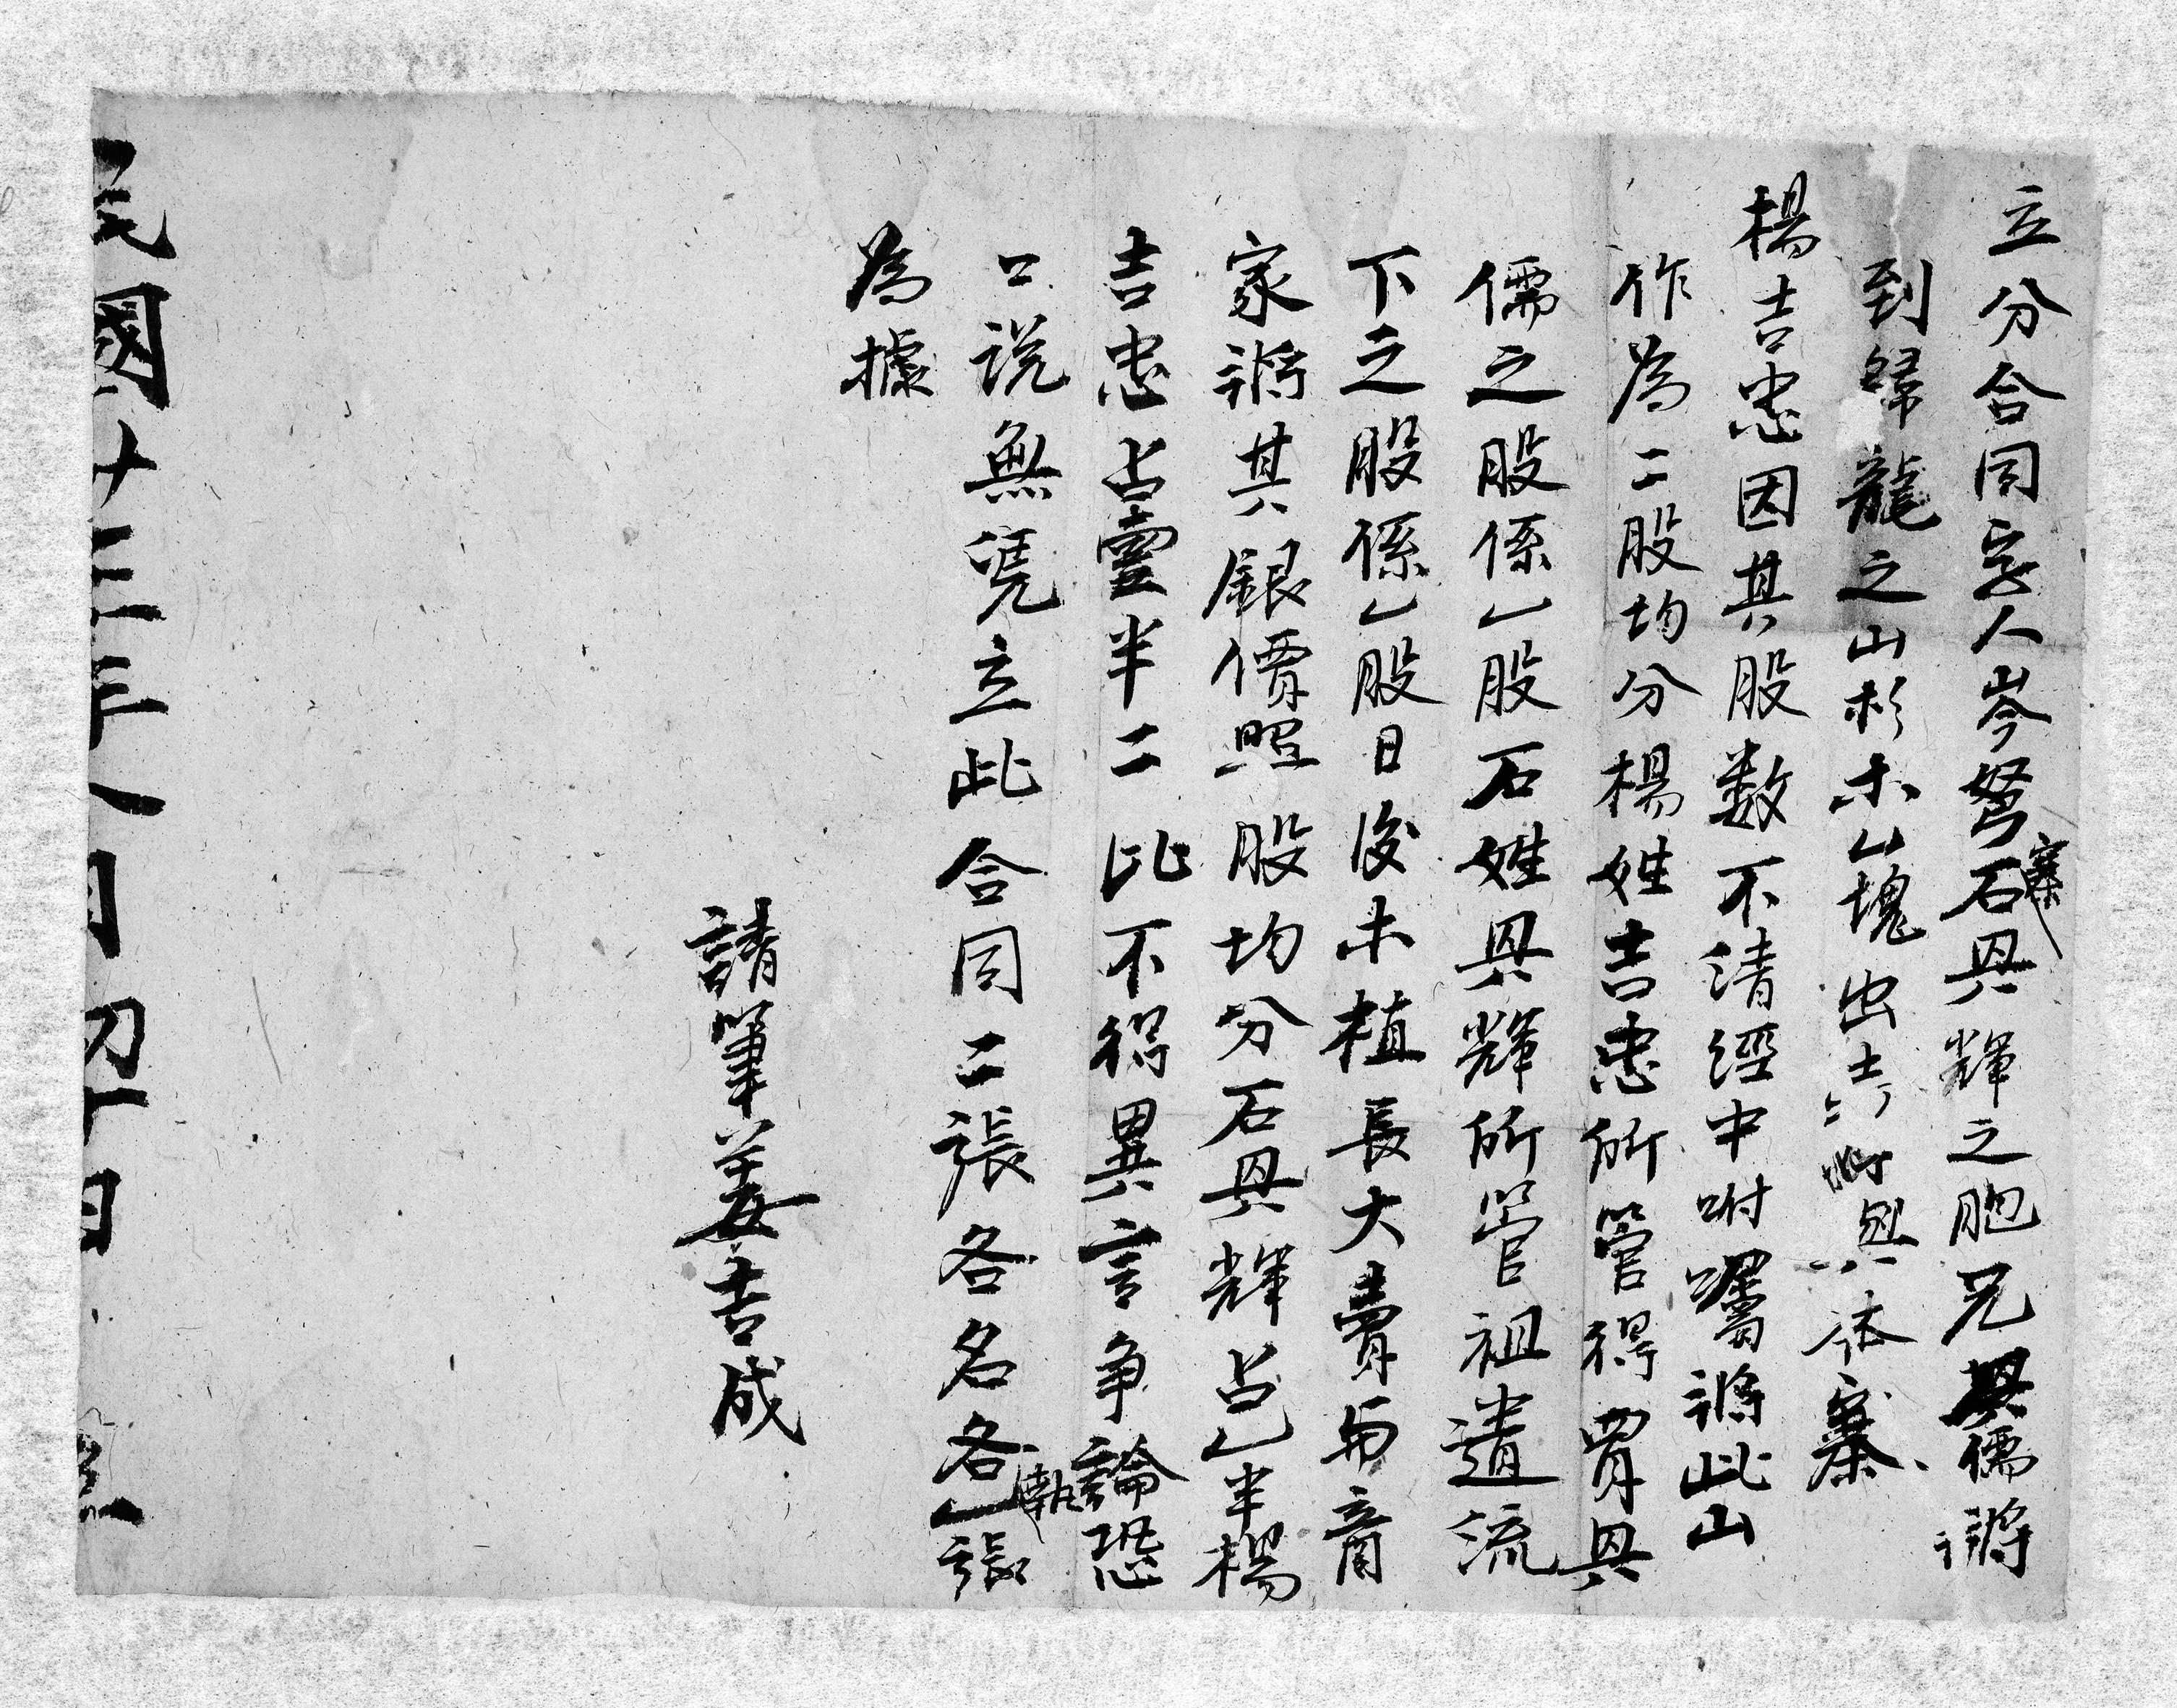 立分合同字人岑弩寨石具輝之胞兄具儒將
到歸龍之山杉木乙塊出吉將與本寨
楊吉忠因其股数不清經中咐囑將此山
作為二股均分楊姓吉忠所管得買具
儒之股係乙股石姓具輝所管祖遺流
下之股係乙股日後木植長大賣与客
家將其銀價照股均分石具輝占乙半楊
吉忠占壹半二比不得異言争論恐
口説無凴立此合同二張各名各執乙張
為據
請筆姜吉成
民國廿三年八月初十日 立